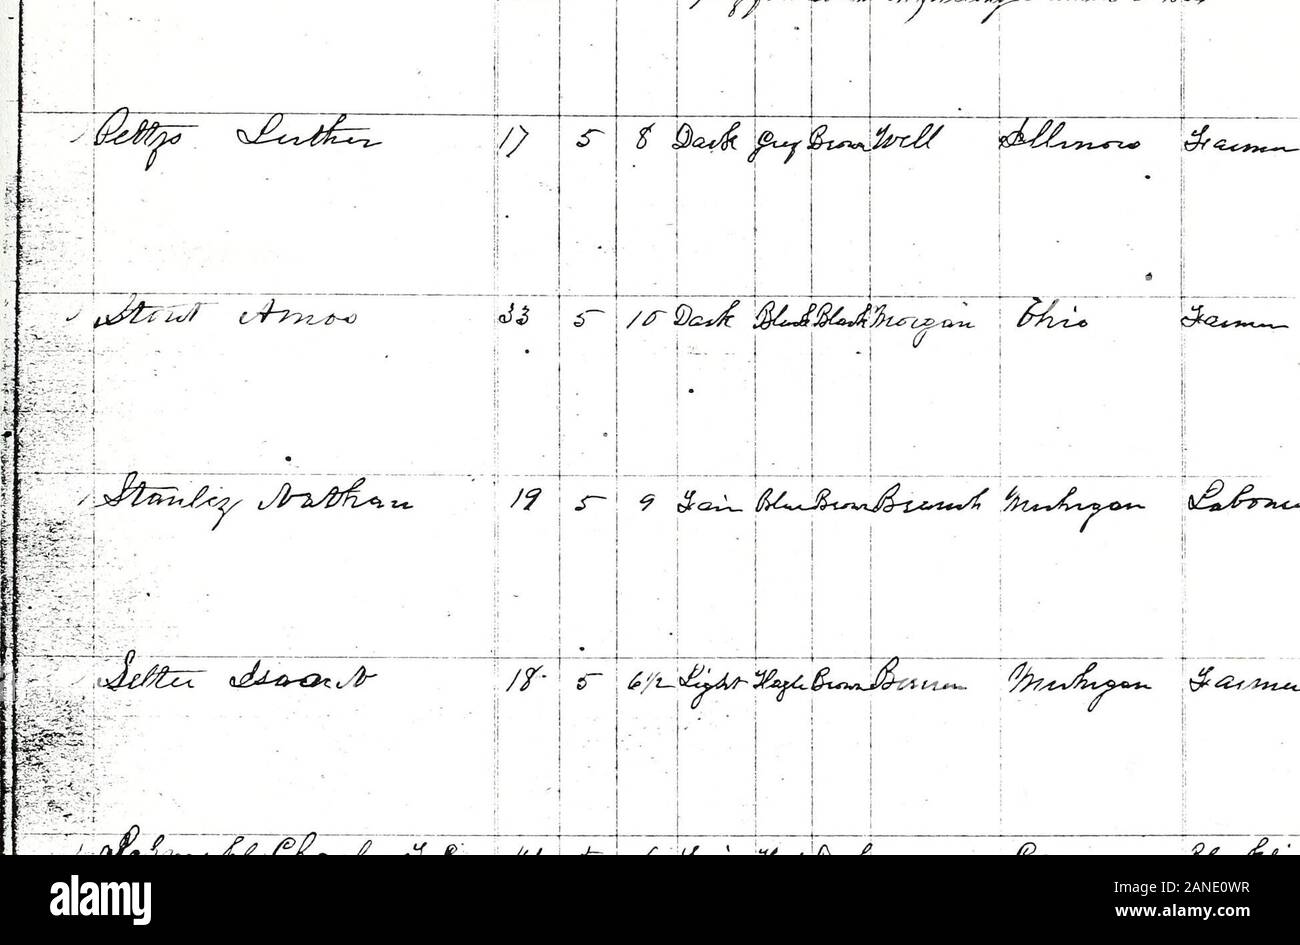 Luther 17 5 8 Dark Grey Brown Will Illinois Farmer
Stout Amos 33 5 10 Dark Black Black Morgan Ohio Farmer
Stanley Nathan 19 5 9 Fair Blue Brown Branch Michigan Labore
Isaac N 18 5 6½ Light Hazle Brown Michigan Farme
alamy
Image ID: 2ANE0WR
www.alamy.com